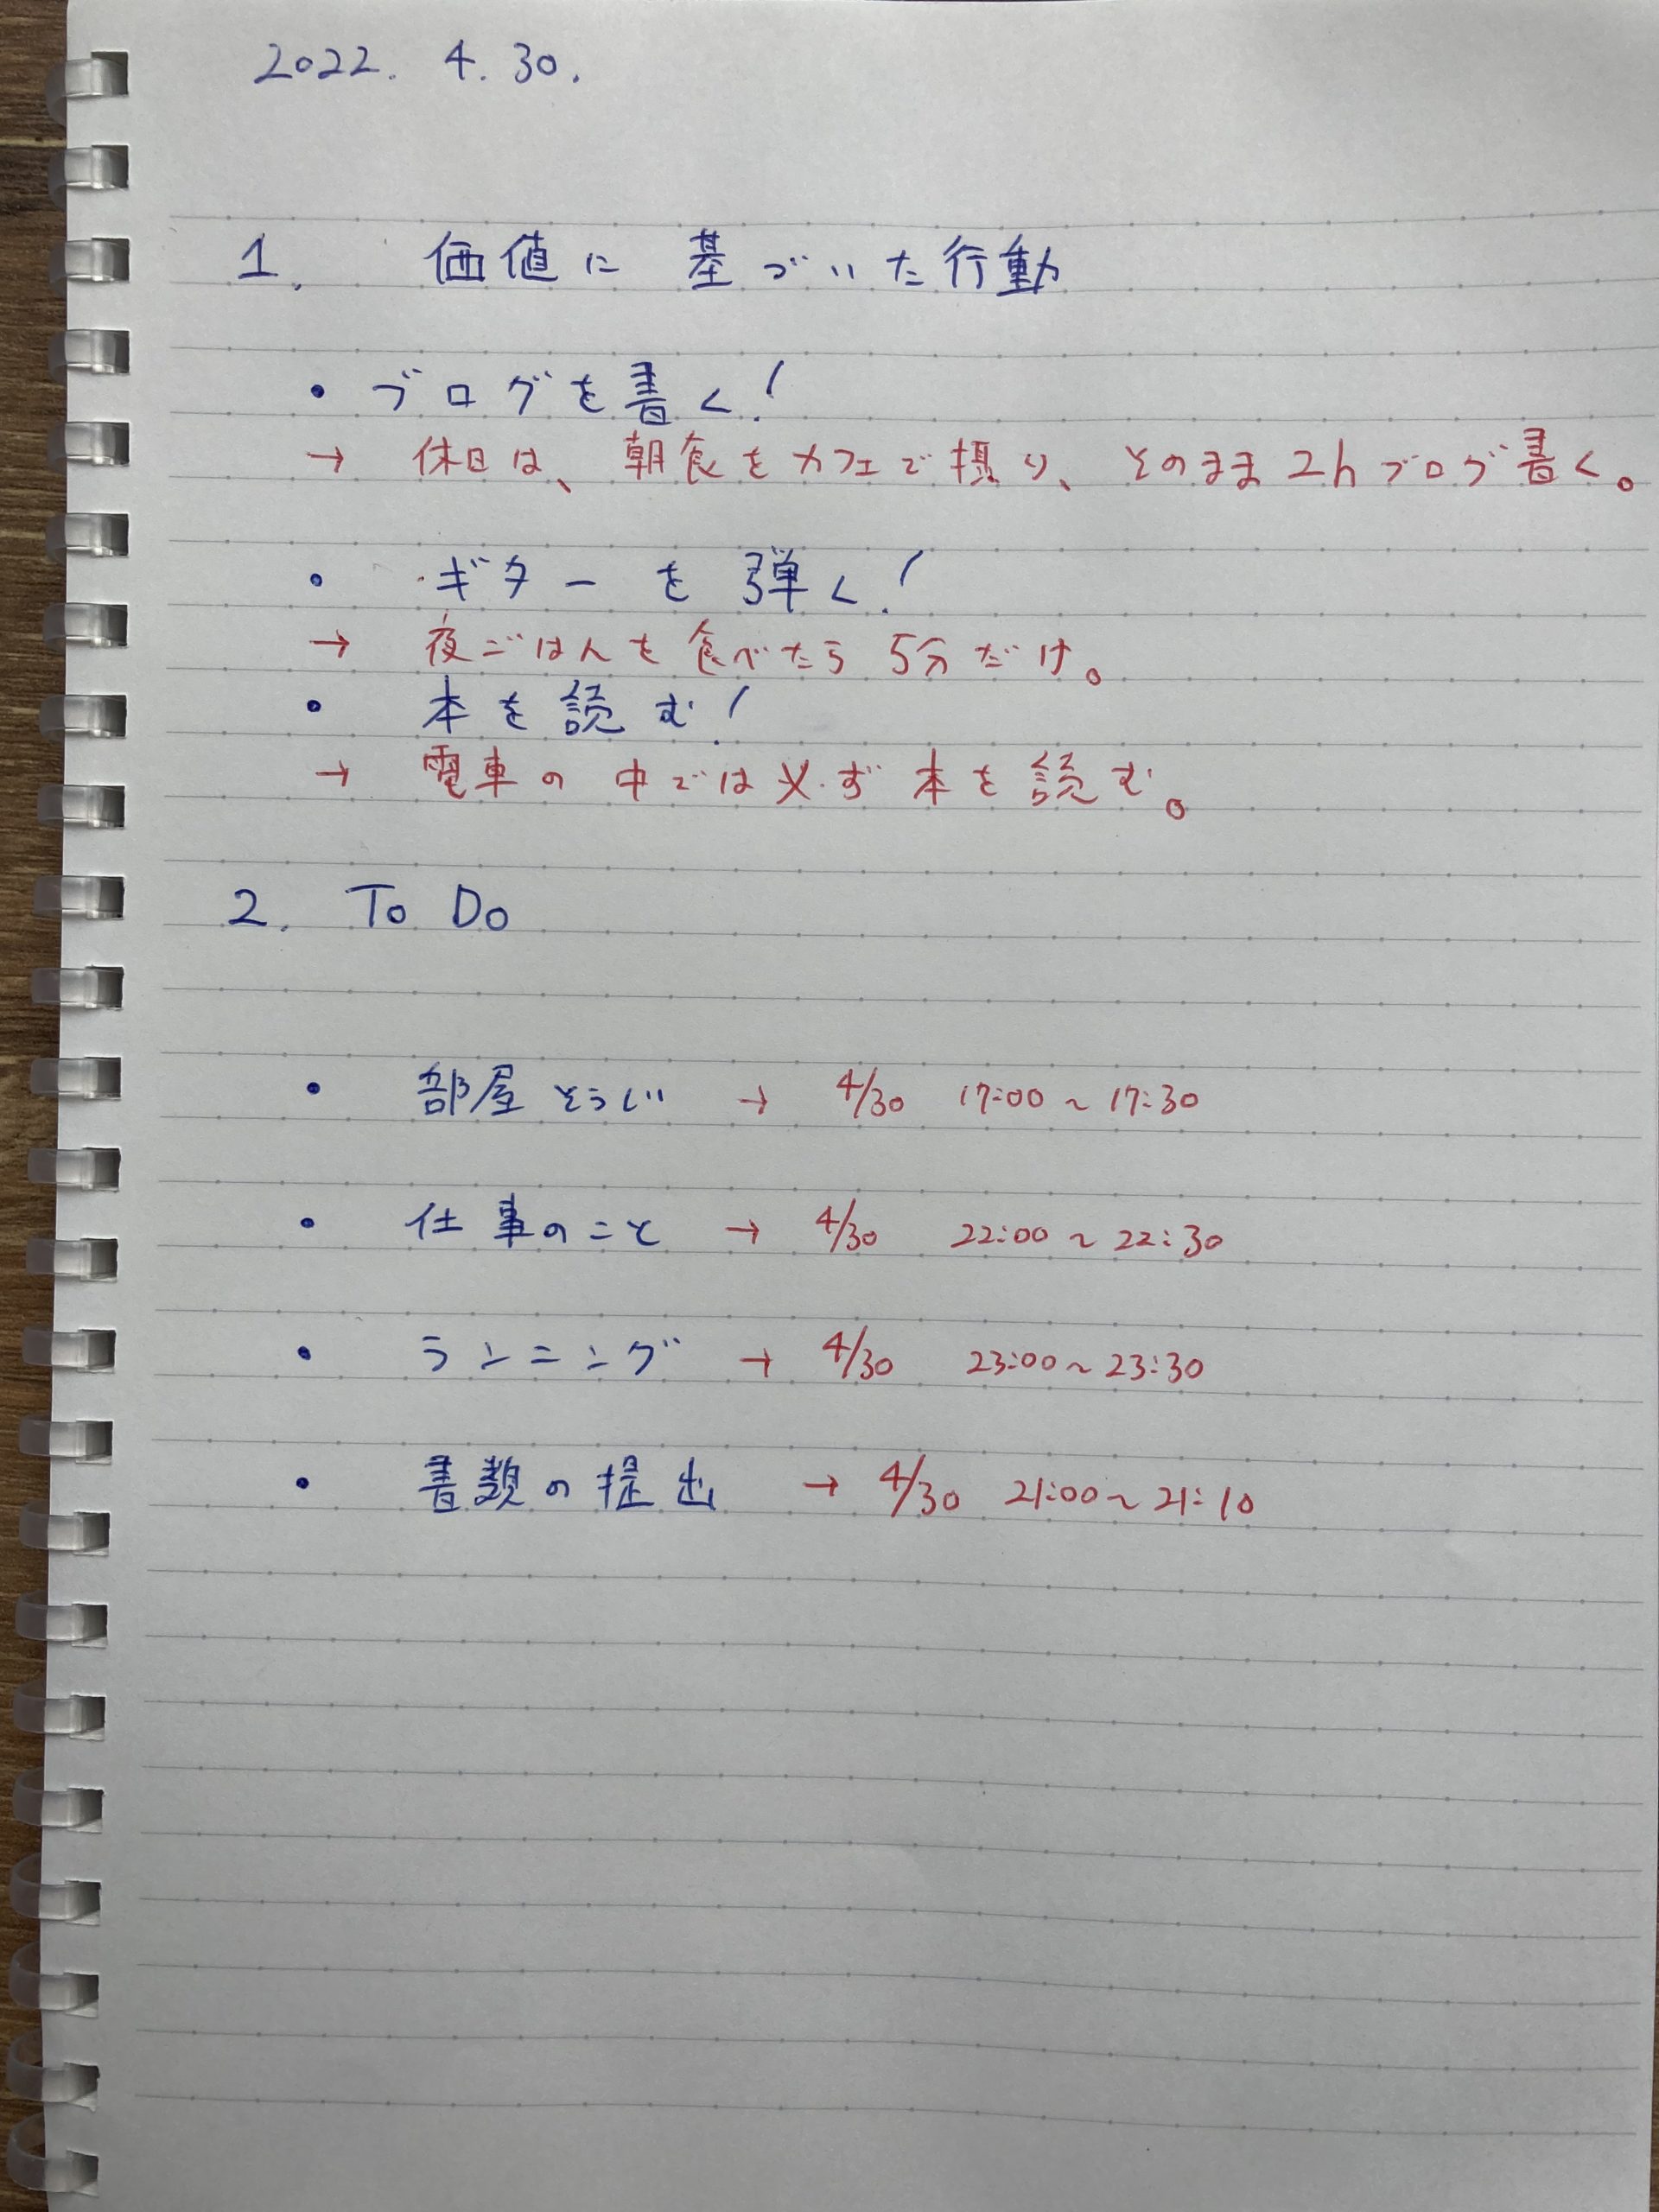 2022. 4. 30.
1. 価値に基づいた行動
・ブログを書く!
→ 休日は、朝食をカフェで摂り、そのまま2hブログ書く。
・ギターを弾く!
→ 夜ごはんを食べたら5分だけ。
・本を読む!
→ 電車の中では必ず本を読む。
2. To Do
・部屋そうじ → 4/30 17:00〜17:30
・仕事のこと → 4/30 22:00〜22:30
・ランニング → 4/30 23:00〜23:30
・書類の提出 → 4/30 21:00〜21:10